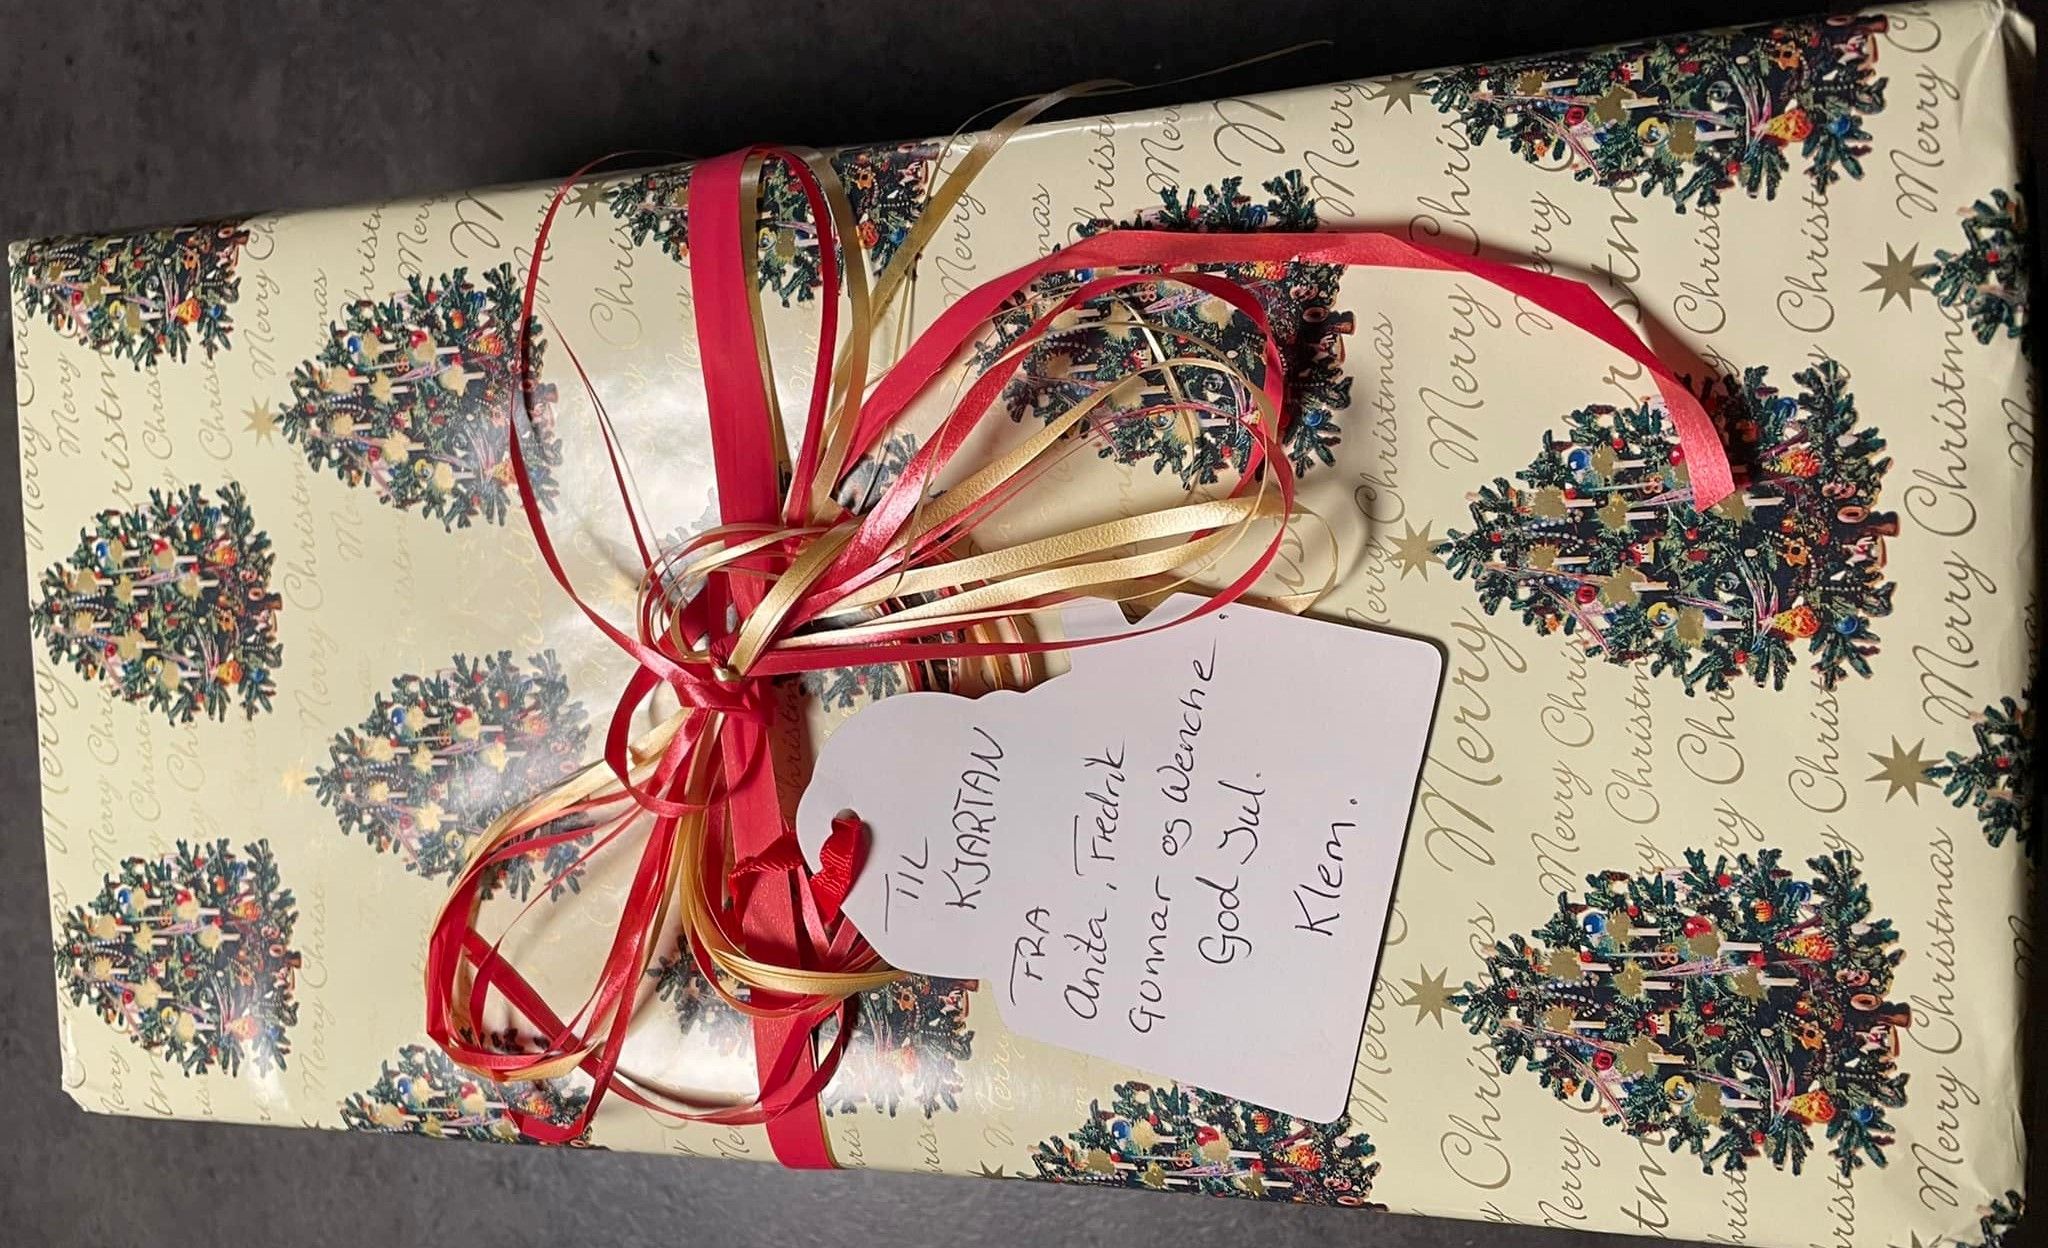 TIL
KJARTAN
FRA
Anita, Fredrik
Gunnar og Wenche.
God Jul.
Klem.
Merry Christmas
Merry Christmas
Merry Christmas
Merry Christmas
Merry Christmas